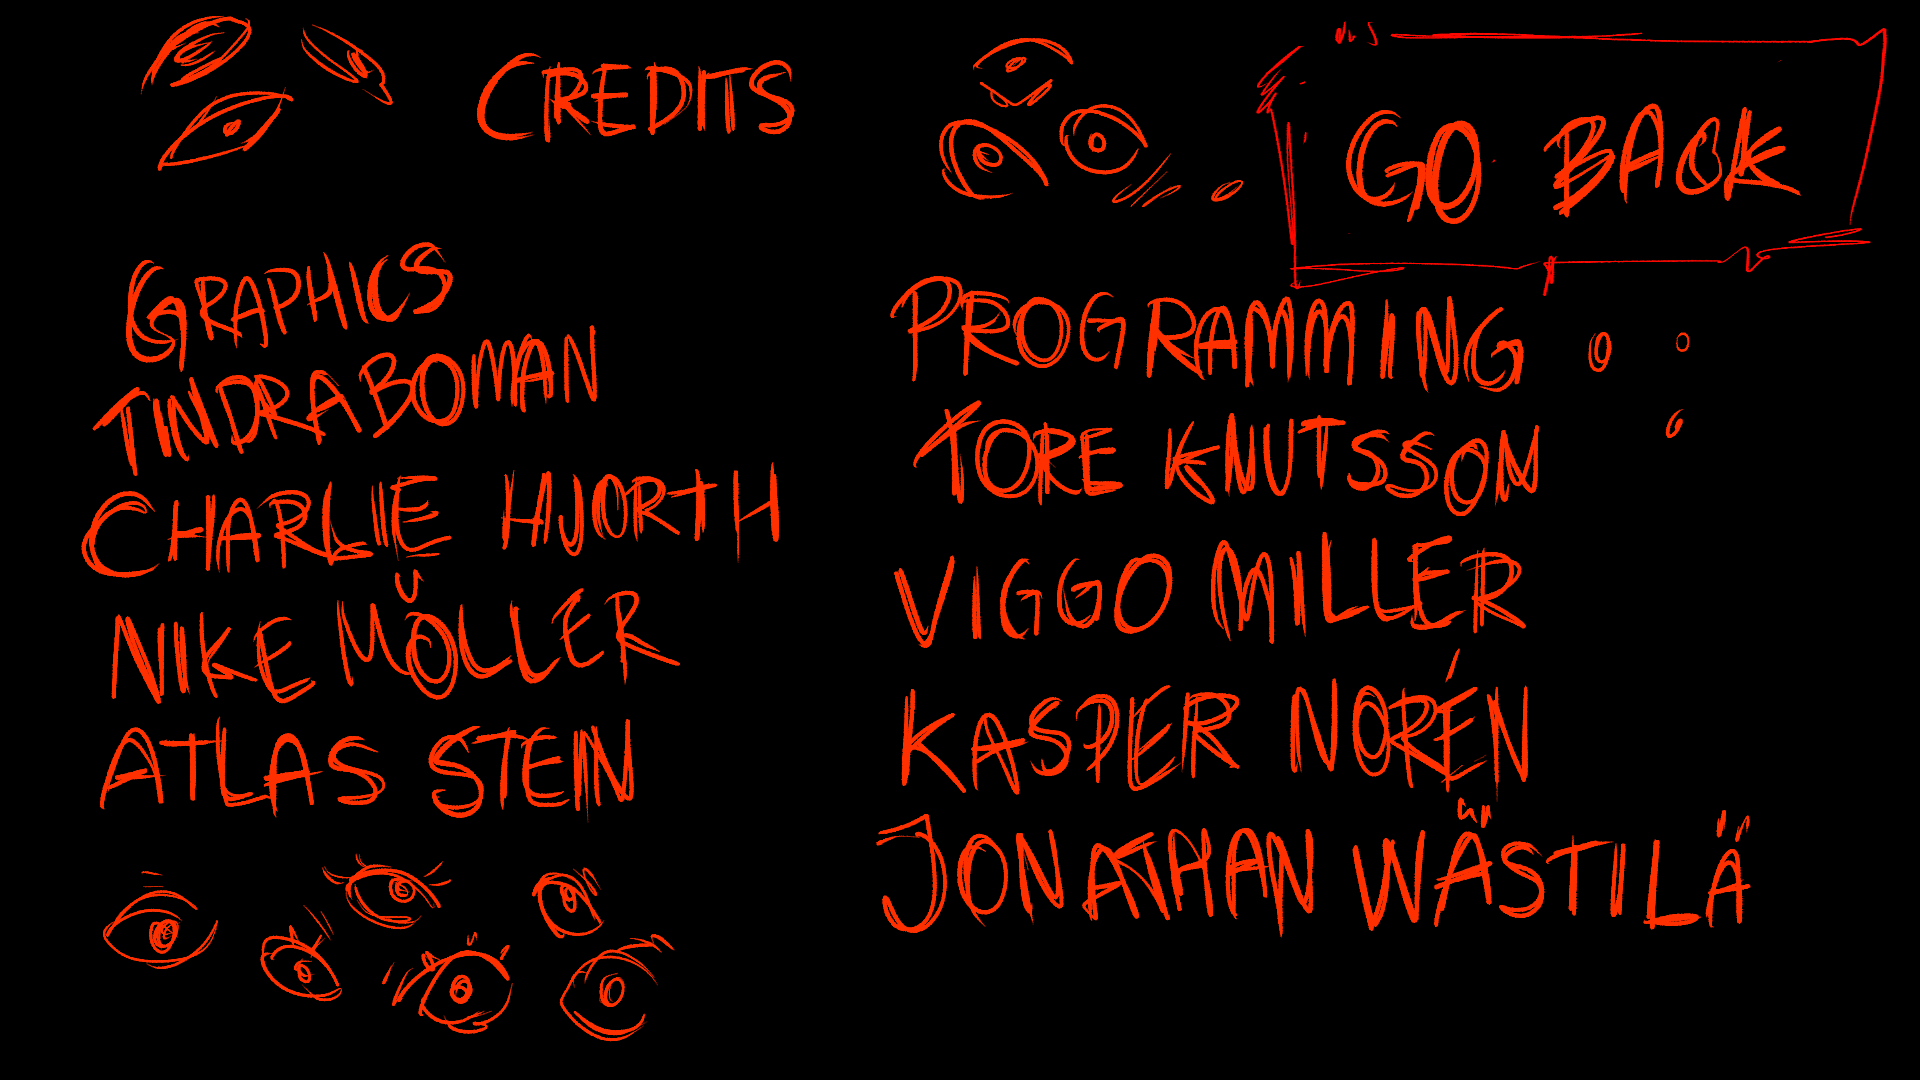 CREDITS
GO BACK
GRAPHICS
TINDRA BOMAN
CHARLIE HJORTH
NIKE MÖLLER
ATLAS STEIN
PROGRAMMING
TORE KNUTSSON
VIGGO MILLER
KASPER NORÉN
JONATHAN WÄSTILÄ